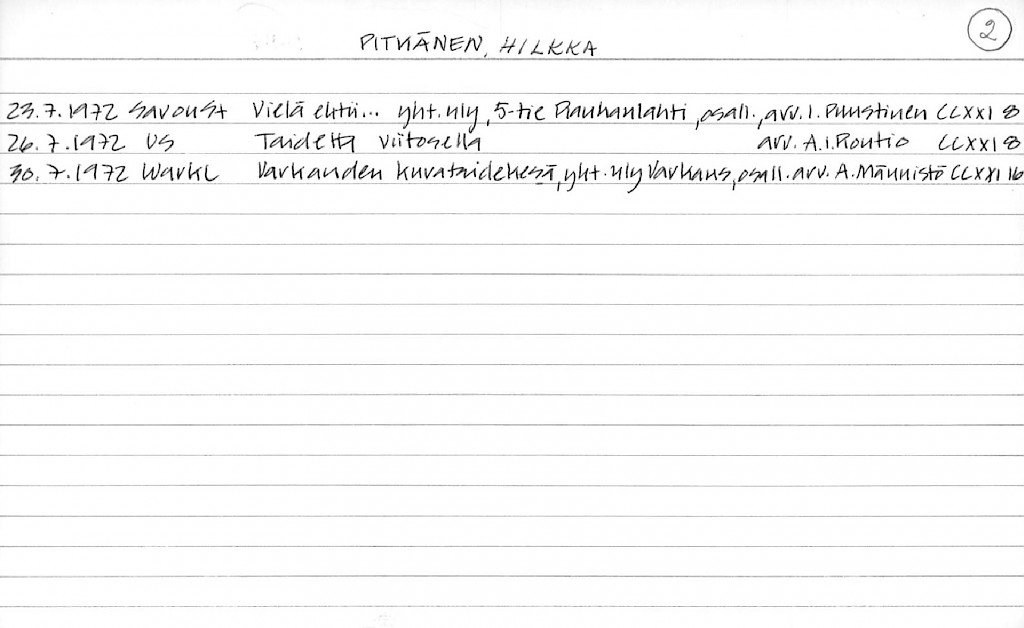 2
PITKÄNEN, HILKKA
23.7.1972 SavonSt Vielä ehtii... yht.nly, 5-tie Rauhanlahti, osall., arv. I. Puustinen CCXXI 8
26.7.1972 US Taidetta viitosella arv. A.I. Routio CCXXI 8
30.7.1972 WarkL Varkauden kuvataidekesä, yht.nly Varkaus, osall. arv. A. Männistö CCXXI 16